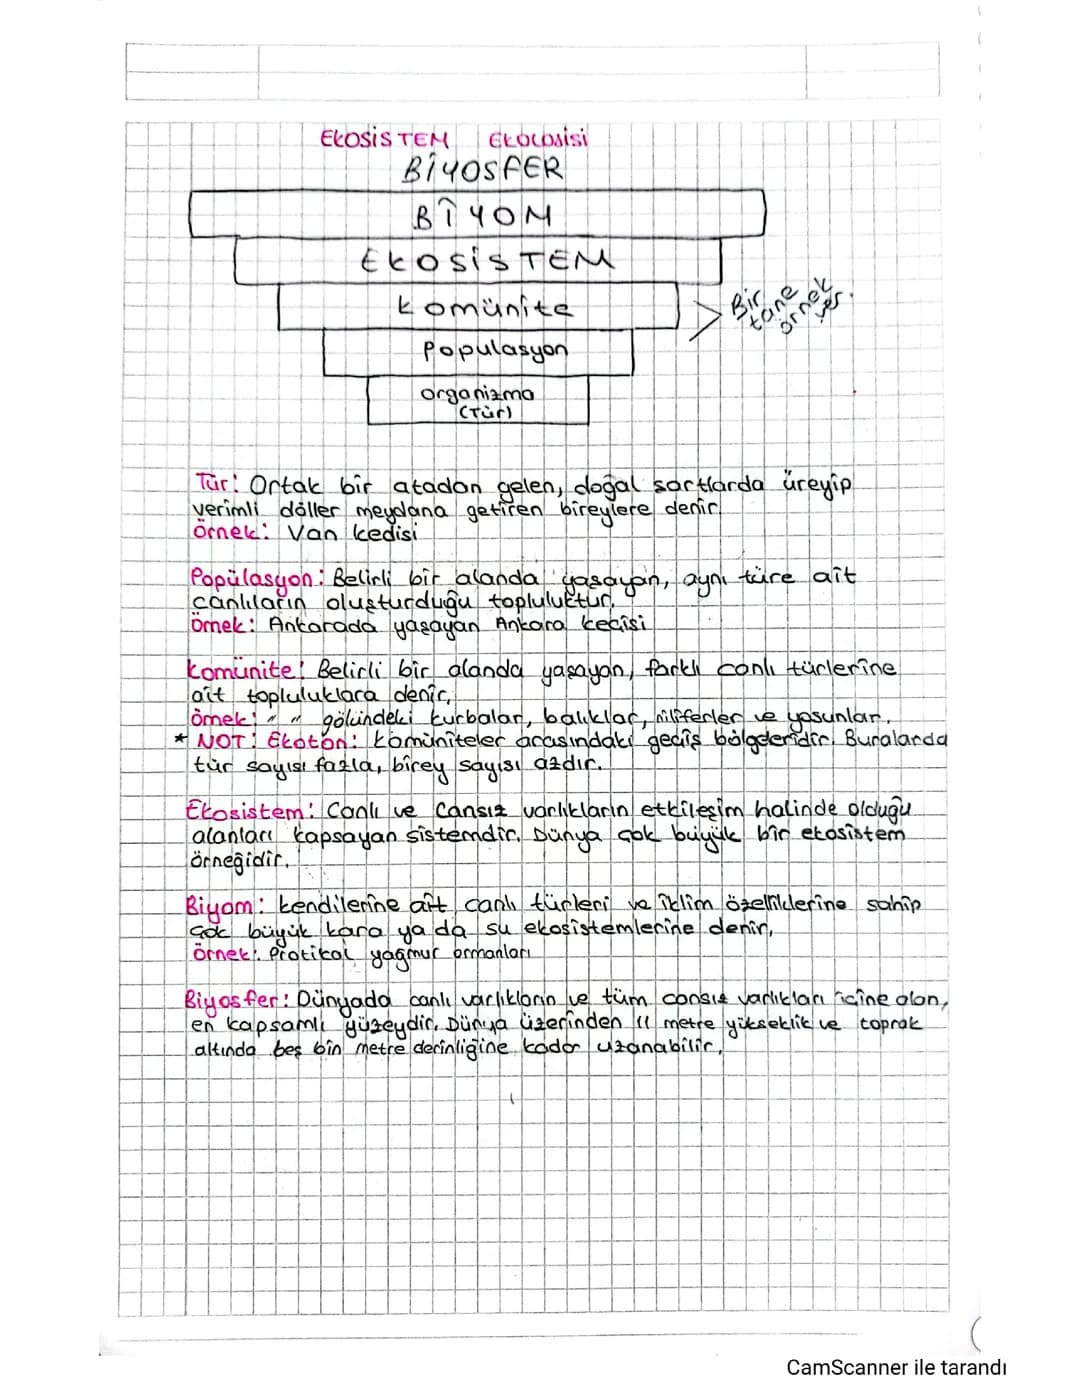 EKOSİSTEM EKOLOJİSİ
BİYOSFER
BİYOM
EKOSİSTEM
Komünite
Bir
tane
örnek
yer.
Populasyon
organizma
(Tür)
Tür: Ortak bir atadan gelen, doğal şartlarda üreyip
verimli döller meydana getiren bireylere denir.
Örnek: Van kedisi
Popülasyon: Belirli bir alanda yaşayan, aynı türe ait
canlıların oluşturduğu topluluktur.
Örnek: Ankarada yaşayan Ankara keçisi
Komünite: Belirli bir alanda yaşayan, farklı canlı türlerine
ait topluluklara denir.
Örnek: " " gölündeki kurbalar, balıklar, niliferler ve yosunlar.
* NOT: Ekoton: Komüniteler arasındaki geçiş bölgeleridir. Buralarda
tür sayısı fazla, birey sayısı azdır.
Ekosistem: Canlı ve Cansız varlıkların etkileşim halinde olduğu
alanları kapsayan sistemdir. Dünya çok büyük bir ekosistem
örneğidir.
Biyom: Kendilerine ait canlı türleri ve iklim özelliklerine sahip
çok büyük kara ya da su ekosistemlerine denir.
Örnek: Protikal yağmur ormanları
Biyosfer: Dünyada canlı varlıkların ve tüm cansız varlıkları içine alan,
en kapsamlı yüzeydir. Dünya üzerinden 11 metre yükseklik ve toprak
altında beş bin metre derinliğine kadar uzanabilir.
CamScanner ile tarandı